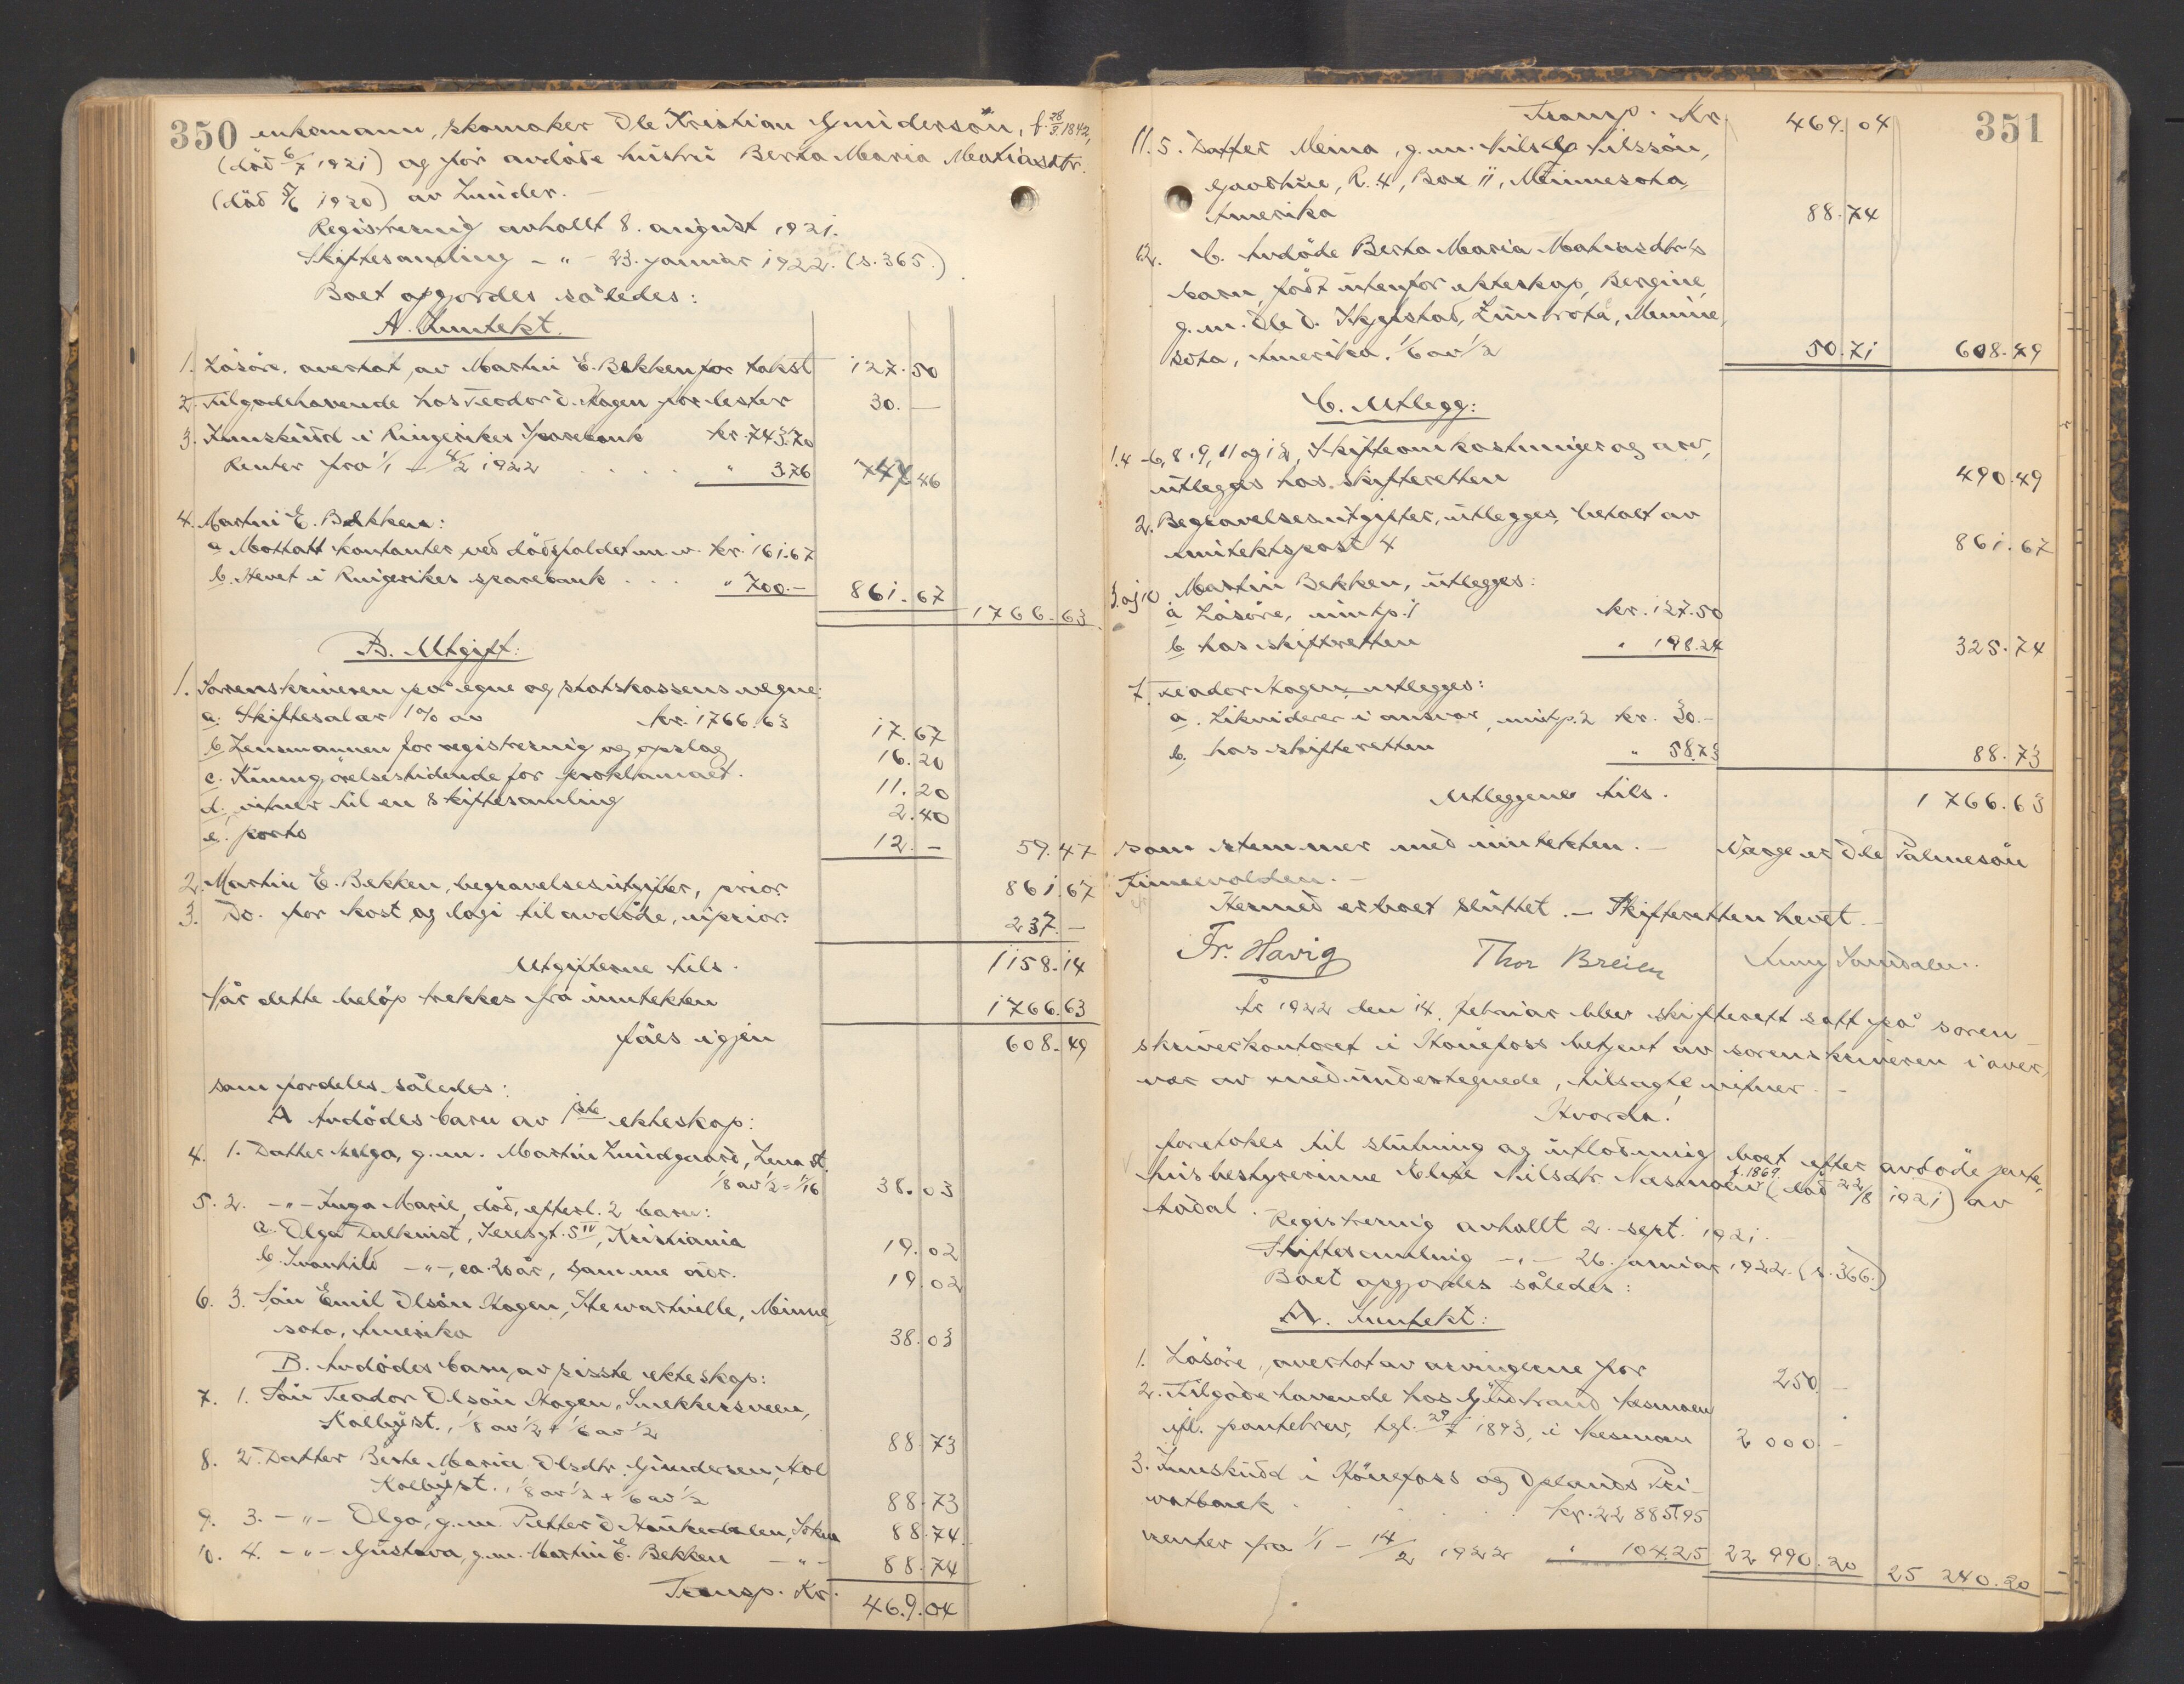 350 enkemann, skomaker Ole Kristian Gundersön, f. 28/3 1842,
(död 6/7 1921) og för avdöde hustru Berta Maria Matiasdtr.
(död 5/6 1920) av Lunder. –
Registrering avholdt 8. august 1921.
Skiftesamling – " – 23. januar 1922. (s. 365.)
Boet opgjordes således:
A. Inntekt.
1. Lösöre, overtat av Martin E. Bekken for takst 127.50
2. Tilgodehavende hos Teodor O. Hagen for hester 30.–
3. Innskudd i Ringerikes Sparebank kr. 743.70
Renter fra 1/1 – 14/2 1922 . . . . " 3.76 747.46
4. Martin E. Bekken:
a. Mottatt kontanter ved dödsfaldet m. v. kr. 161.67
b. Hevet i Ringerikes sparebank . . . " 700.– 861.67
1766.63
B. Utgift:
1. Sorenskriveren på egne og statskassens vegne:
a. Skiftesalær 1% av kr. 1766.63 17.67
b. Lensmannen for registrering og opslag 16.20
c. Kunngjörelsestidende for proklamaet. 11.20
d. vitner til en skiftesamling 2.40
e. porto 12.– 59.47
2. Martin E. Bekken, begravelsesutgifter, prior. 861.67
3. Do. for kost og losji til avdöde, uprior. 237.–
Utgifterne tils. 1158.14
Når dette belöp trekkes fra inntekten 1766.63
fåes igjen 608.49
som fordeles således:
A Avdödes barn av 1ste ekteskap:
4. 1. Datter Helga, g. m. Martin Lundgaard, Lena st.
1/8 av 1/2 = 1/16 38.03
5. 2. – " – Inga Marie, död, efterl. 2 barn:
a. Olga Dalkvist, Seresgt. 5 IV, Kristiania 19.02
b. Svanhild – " –, ca. 20 år, samme adr. 19.02
6. 3. Sön Emil Olsön Hagen, Stewartville, Minne
sota, Amerika 38.03
B. Avdödes barn av sisste ekteskap:
7. 1. Sön Teodor Olsön Hagen, Snekkersveen,
Kolbust., 1/8 av 1/2 + 1/6 av 1/2 88.73
8. 2. Datter Berte Marie Olsdtr. Gundersen,
1/8 av 1/2 + 1/6 av 1/2 88.73
9. 3. – " – Olga, g. m. Petter O. Haukedalen, Sokna 88.74
10. 4. – " – Gustava, g. m. Martin E. Bekken – " – 88.74
Transp. Kr. 469.04
Transp. Kr. 469.04 351
11. 5. Datter Meina, g. m. Nils Nilssön,
Goodhue, R. 4, Box 11, Minnesota,
Amerika 88.74
12. C. Avdöde Berta Maria Matiasdtr's
barn, födt utenfor ekteskap, Bergine,
g. m. Ole O. Minne
sota, Amerika. 1/6 av 1/2 50.71 608.49
C. Utlegg:
1. 4 – 6, 8, 9, 11 og 12, Skifteomkostninger og arv,
utlegges hos skifteretten 490.49
2. Begravelsesutgifter, utlegges, betalt av
inntektspost 4 861.67
3. og 10 Martin Bekken, utlegges:
a Lösöre, inntp. 1 kr. 127.50
b hos skifteretten " 198.24 325.74
7. Teodor Hagen, utlegges:
a. Likviderer i ansvar, inntp. 2 kr. 30.–
b. hos skifteretten " 58.73 88.73
Utleggene tils. 1 766.63
som stemmer med inntekten. – Verge er Ole Palmesön
– Hermed er boet sluttet. – Skifteretten hevet. –
Fr. Havig Thor Breien
År 1922 den 14. februar blev skifterett satt på soren
skriverkontoret i Hönefoss betjent av sorenskriveren i over
vær av medundertegnede, tilsagte vitner. –
Hvorda!
foretokes til slutning og utlodning boet efter avdöde
husbestyrerinne Elise Nilsdtr. Næsmoen f. 1869. (död 22/8 1921) av
Ådal.
Registrering avholdt 2. sept. 1921. –
Skiftesamling – " – 26. januar 1922. (s. 366.)
Boet opgjordes således:
A. Inntekt:
1. Lösöre, overtat av arvingerne for 250 –
2. Tilgodehavende hos Gudbrand Næsmoen
ifl. pantebrev, tgl. 29/7 1893, i Næsmoen 2 000.–
3. Innskudd i Hönefoss og Oplands Pri-
vatbank . . . . kr. 22 885.95
renter fra 1/1 – 14/2 1922 " 104.25 22 990.20 25 240.20